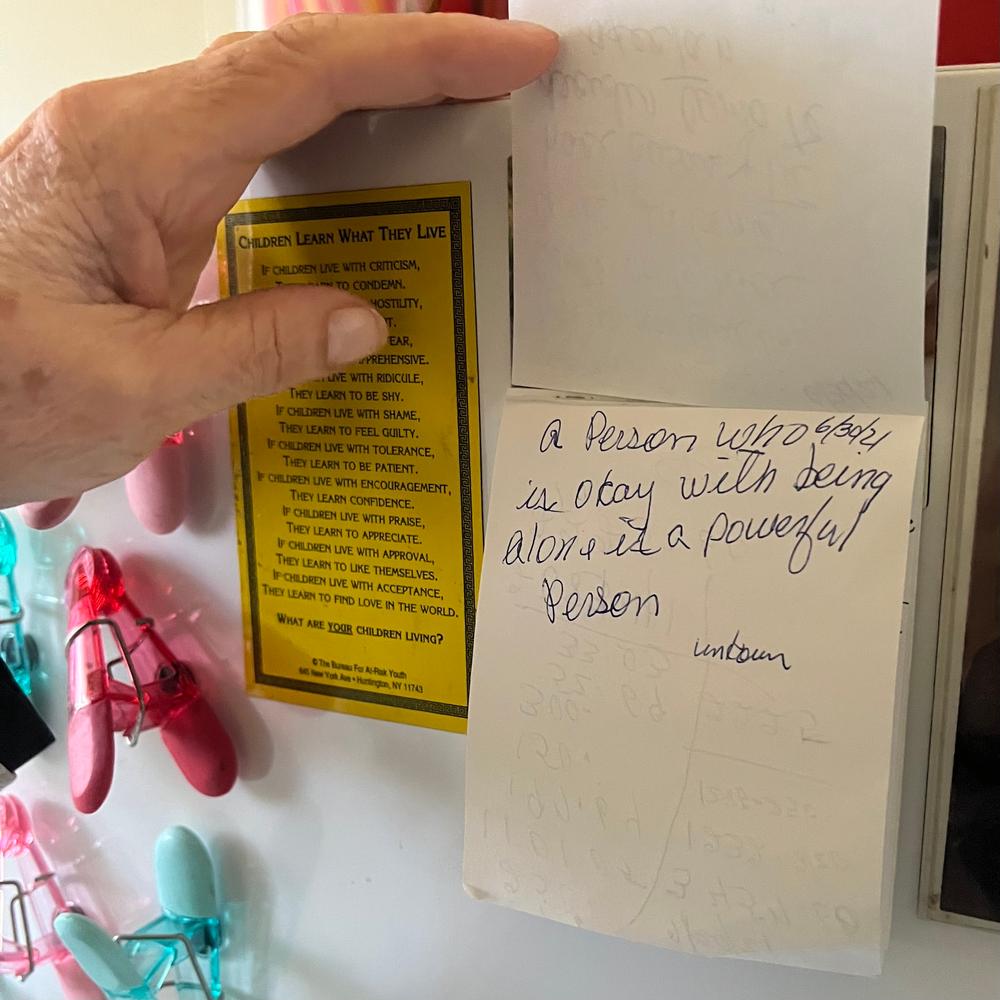 CHILDREN LEARN WHAT THEY LIVE
IF CHILDREN LIVE WITH CRITICISM,
TO CONDEMN.
HOSTILITY,
PREHENSIVE.
LIVE WITH RIDICULE,
THEY LEARN TO BE SHY.
IF CHILDREN LIVE WITH SHAME,
THEY LEARN TO FEEL GUILTY.
IF CHILDREN LIVE WITH TOLERANCE,
THEY LEARN TO BE PATIENT.
IF CHILDREN LIVE WITH ENCOURAGEMENT,
THEY LEARN CONFIDENCE.
IF CHILDREN LIVE WITH PRAISE,
THEY LEARN TO APPRECIATE.
IF CHILDREN LIVE WITH APPROVAL,
THEY LEARN TO LIKE THEMSELVES.
IF CHILDREN LIVE WITH ACCEPTANCE,
THEY LEARN TO FIND LOVE IN THE WORLD.
WHAT ARE YOUR CHILDREN LIVING?
© The Bureau For At-Risk Youth
645 New York Ave • Huntington, NY 11743
a Person who 6/30/21
is okay with being
alone is a powerful
Person
unkown